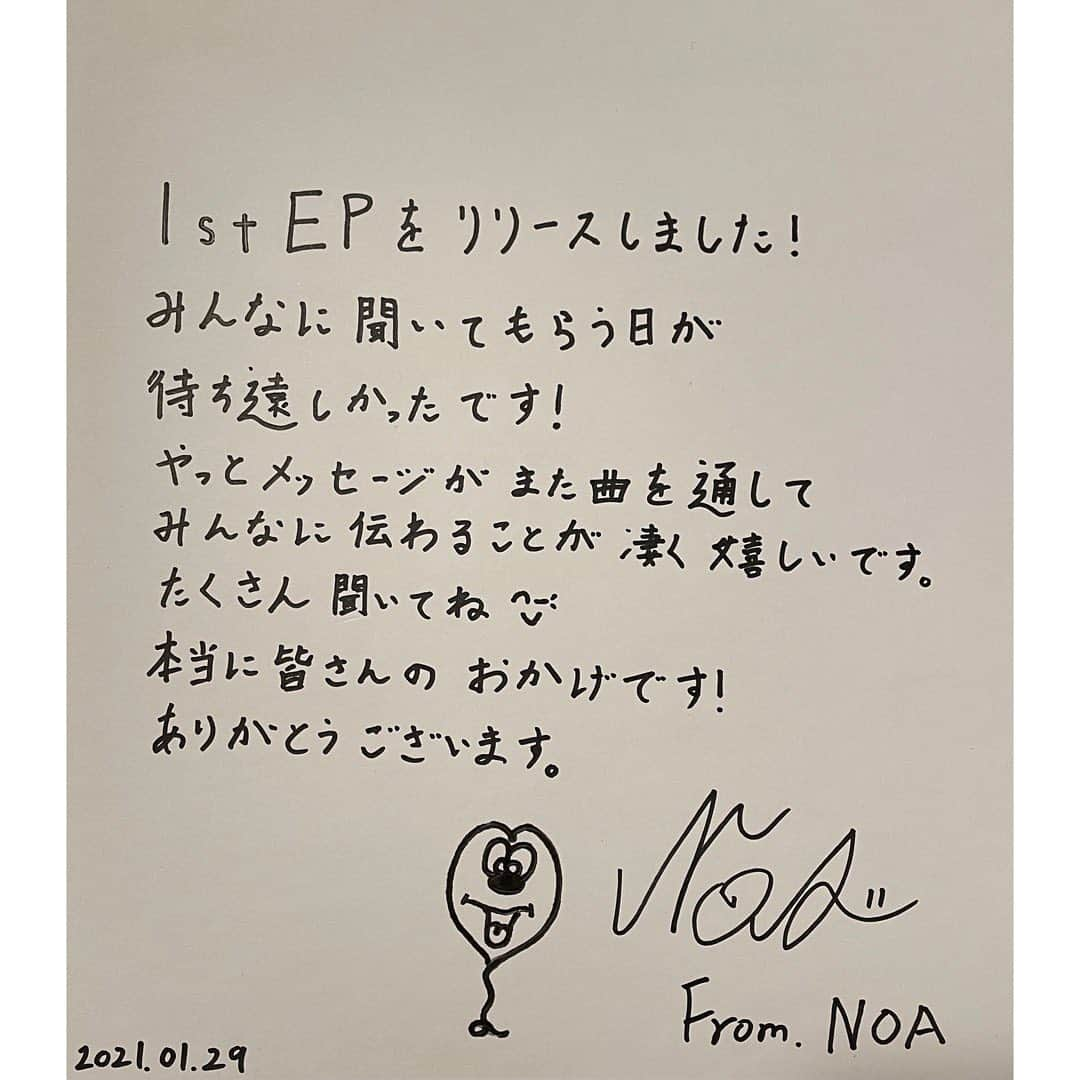 1st EPをリリースしました!
みんなに聞いてもらう日が
待ち遠しかったです!
やっとメッセージがまた曲を通して
みんなに伝わることが凄く嬉しいです。
たくさん聞いてね
本当に皆さんのおかげです!
ありがとうございます。
NOA
From. NOA
2021.01.29